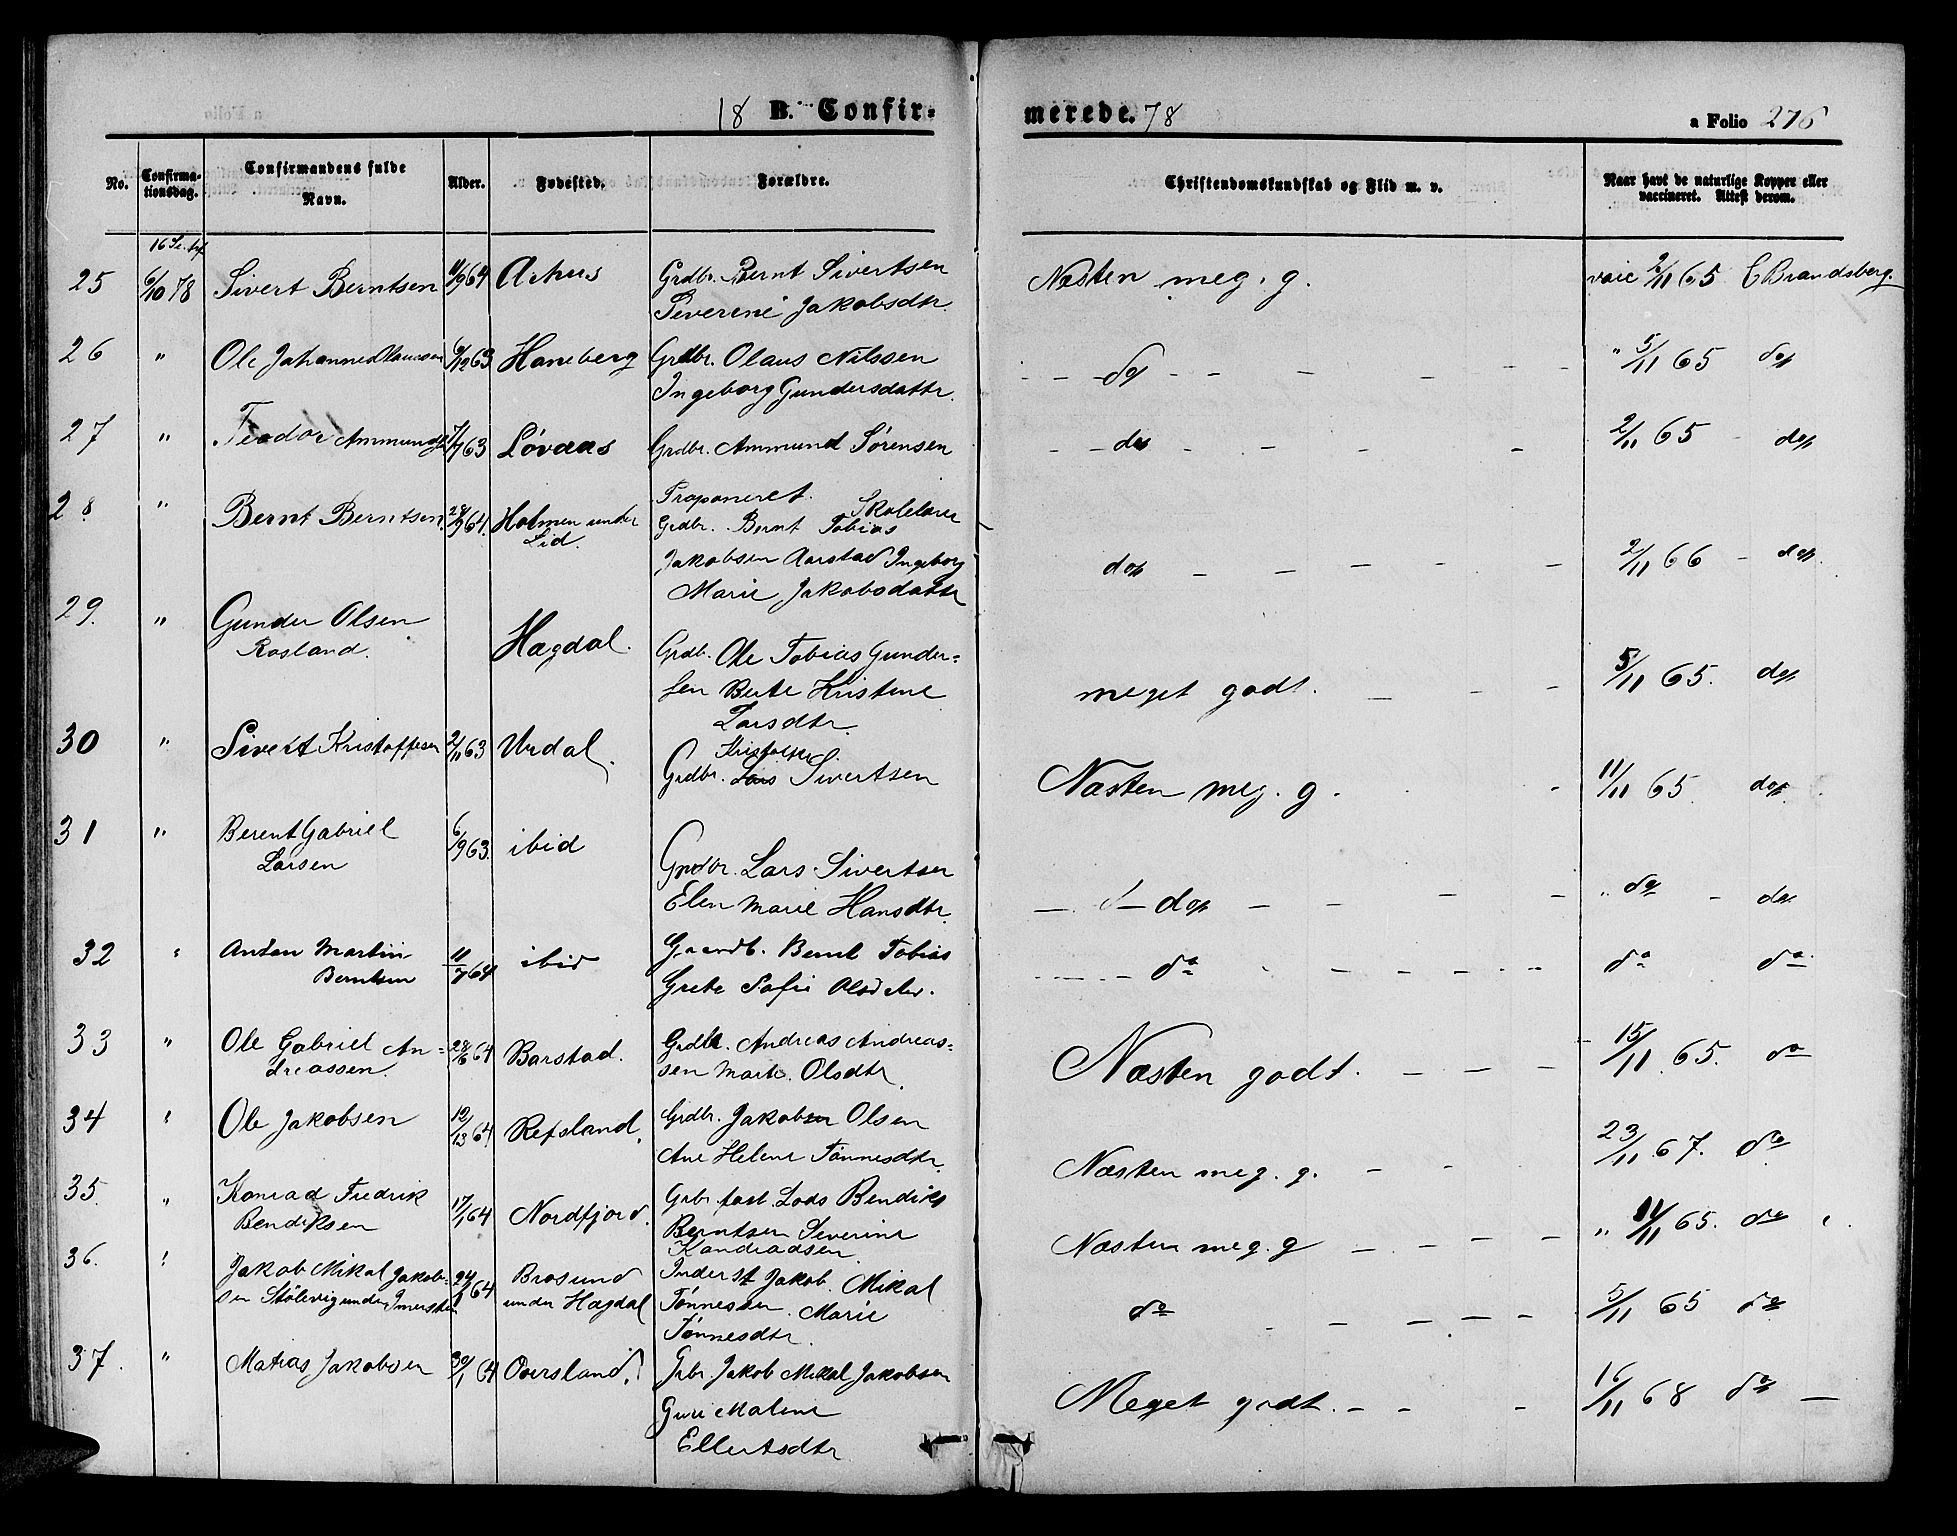 18 B. Confir- merede. 78
a Folio 276
No. Confirmationsdag. Confirmandens fulde Navn. Alder. Fødested. Forældre. Christendomskundskab og Flid m. v. Naar havt de naturlige Kopper eller vaccineret. Attest derom.
25 6/10 78 Sivert Berntsen 11/9 64 Grdbr. Bernt Sivertsen Næsten meg. g. 2/11 65 C Brandsberg
Severine Jakobsdtr.
26 " Ole Johannes Olaussen 63 Haneberg Grdbr. Olaus Nilssen do " 5/11 65 do
Ingeborg Gundersdattr.
27 " Teodor 63 Løvaas Grdbr. Ammund Sørensen do 2/11 65 - do
28. " Bernt Berntsen 28/9 64. Holmen under Lid. Proponeret. Skolelærer
Grdbr. Bernt Tobias
Jakobsen Aarstad Ingeborg do 2/11 66 - do
Marie Jakobsdattr
29. " Gunder Olsen Rosland. Hægdal. Grdb. Ole Tobias Gunder-
sen Berte Kristine meget godt. 5/11 65. do
Larsdtr.
30 " Sivert Kristoffersen 2/11 63 Urdal. Kristoffer
Grdbr. Lars Sivertsen Næsten meg. g. 11/11 65 do
31 " Berent Gabriel Larsen 6/9 63. ibid Grdbr. Lars Sivertsen
Elen Marie Hansdtr. do " do - do
32 " Anton Martin Berntsen 11/7 64 ibid Gaardb. Bernt Tobias
Grete Sofie Olsdtr. do do do
33 " Ole Gabriel Andreassen. 28/6 64 Barstad. Grdbr. Andreas Andreas-
sen Marte Olsdtr. Næsten godt. 15/11 65. do
34 " Ole Jakobsen 12/13 64 Refsland. Grdbr. Jakob Olsen
Ane Helene Tønnesdtr. Næsten meg. g. 23/11 67. do
35. " Konrad Fredrik Bendiksen 17/1 64 Nordfjord. Grbr. fast. Lods Bendiks
Berntsen Severine
Kondradsen Næsten meg. g " 11/11 65. do
36. " Jakob Mikal Jakob-
sen Stølevig under 24/1 64 Brosund
under Hægdal Inderst Jakob Mikal
Tønnessen. Marie
Tønnesdtr. do 5/11 65 do
37. " Matias Jakobsen 30/1 64 Oversland. Grbr. Jakob Mikal Jakobsen
Guri Malene
Ellertsdtr Meget godt. 16/11 68 do